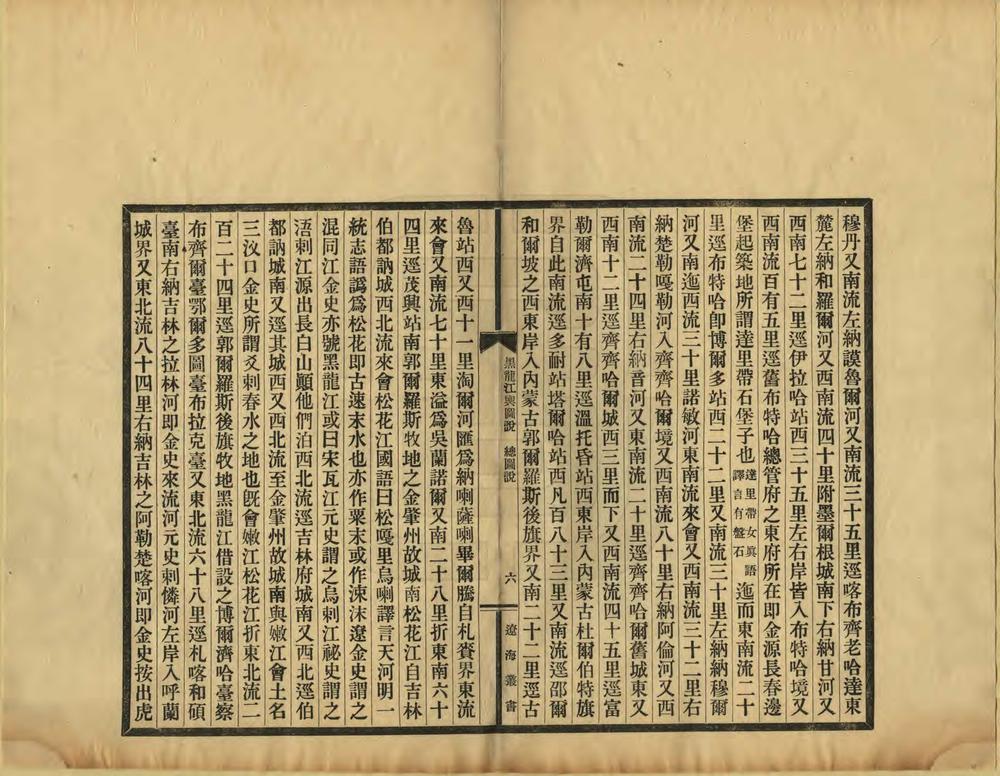 穆丹又南流左納謨魯爾河又南流三十五里逕喀布齊老哈達東
麓左納和羅爾河又西南流四十里附墨爾根城南下右納甘河又
西南七十二里逕伊拉哈站西三十五里左右岸皆入布特哈境又
西南流百有五里逕舊布特哈總管府之東府所在即金源長春邊
堡起築地所謂達里帶石堡子也達里帶女眞語譯言有盤石迤而東南流二十
里逕布特哈卽博爾多站西二十二里又南流三十里左納納穆爾
河又南迤西流三十里諾敏河東南流來會又西南流三十二里右
納楚勒嘎勒河入齊齊哈爾境又西南流八十里右納阿倫河又西
南流二十四里右納音河又東南流二十里逕齊齊哈爾舊城東又
西南十二里逕齊齊哈爾城西三里而下又西南流四十五里逕富
勒爾濟屯南十有八里逕溫托昏站西東岸入內蒙古杜爾伯特旗
界自此南流逕多耐站塔爾哈站西凡百八十三里又南流逕邵爾
和爾坡之西東岸入內蒙古郭爾羅斯後旗界又南二十二里逕古
黑龍江輿圖說 總圖說 六 遼海叢書
魯站西又西十一里淘爾河匯爲納喇薩喇畢爾騰自札賚界東流
來會又南流七十里東溢爲吳蘭諾爾又南二十八里折東南六十
四里逕茂興站南郭爾羅斯牧地之金肇州故城南松花江自吉林
伯都訥城西北流來會松花江國語曰松嘎里烏喇譯言天河明一
統志語譌爲松花即古速末水也亦作粟末或作涑沫遼金史謂之
混同江金史亦號黑龍江或曰宋瓦江元史謂之烏剌江祕史謂之
浯剌江源出長白山顚他們泊西北流逕吉林府城南又西北逕伯
都訥城南又逕其城西又西北流至金肇州故城南與嫩江會土名
三汊口金史所謂爻剌春水之地也旣會嫩江松花江折東北流二
百二十四里逕郭爾羅斯後旗牧地黑龍江借設之博爾濟哈臺察
布齊爾臺鄂爾多圖臺布拉克臺又東北流六十八里逕札喀和碩
臺南右納吉林之拉林河即金史來流河元史剌憐河左岸入呼蘭
城界又東北流八十四里右納吉林之阿勒楚喀河即金史按出虎